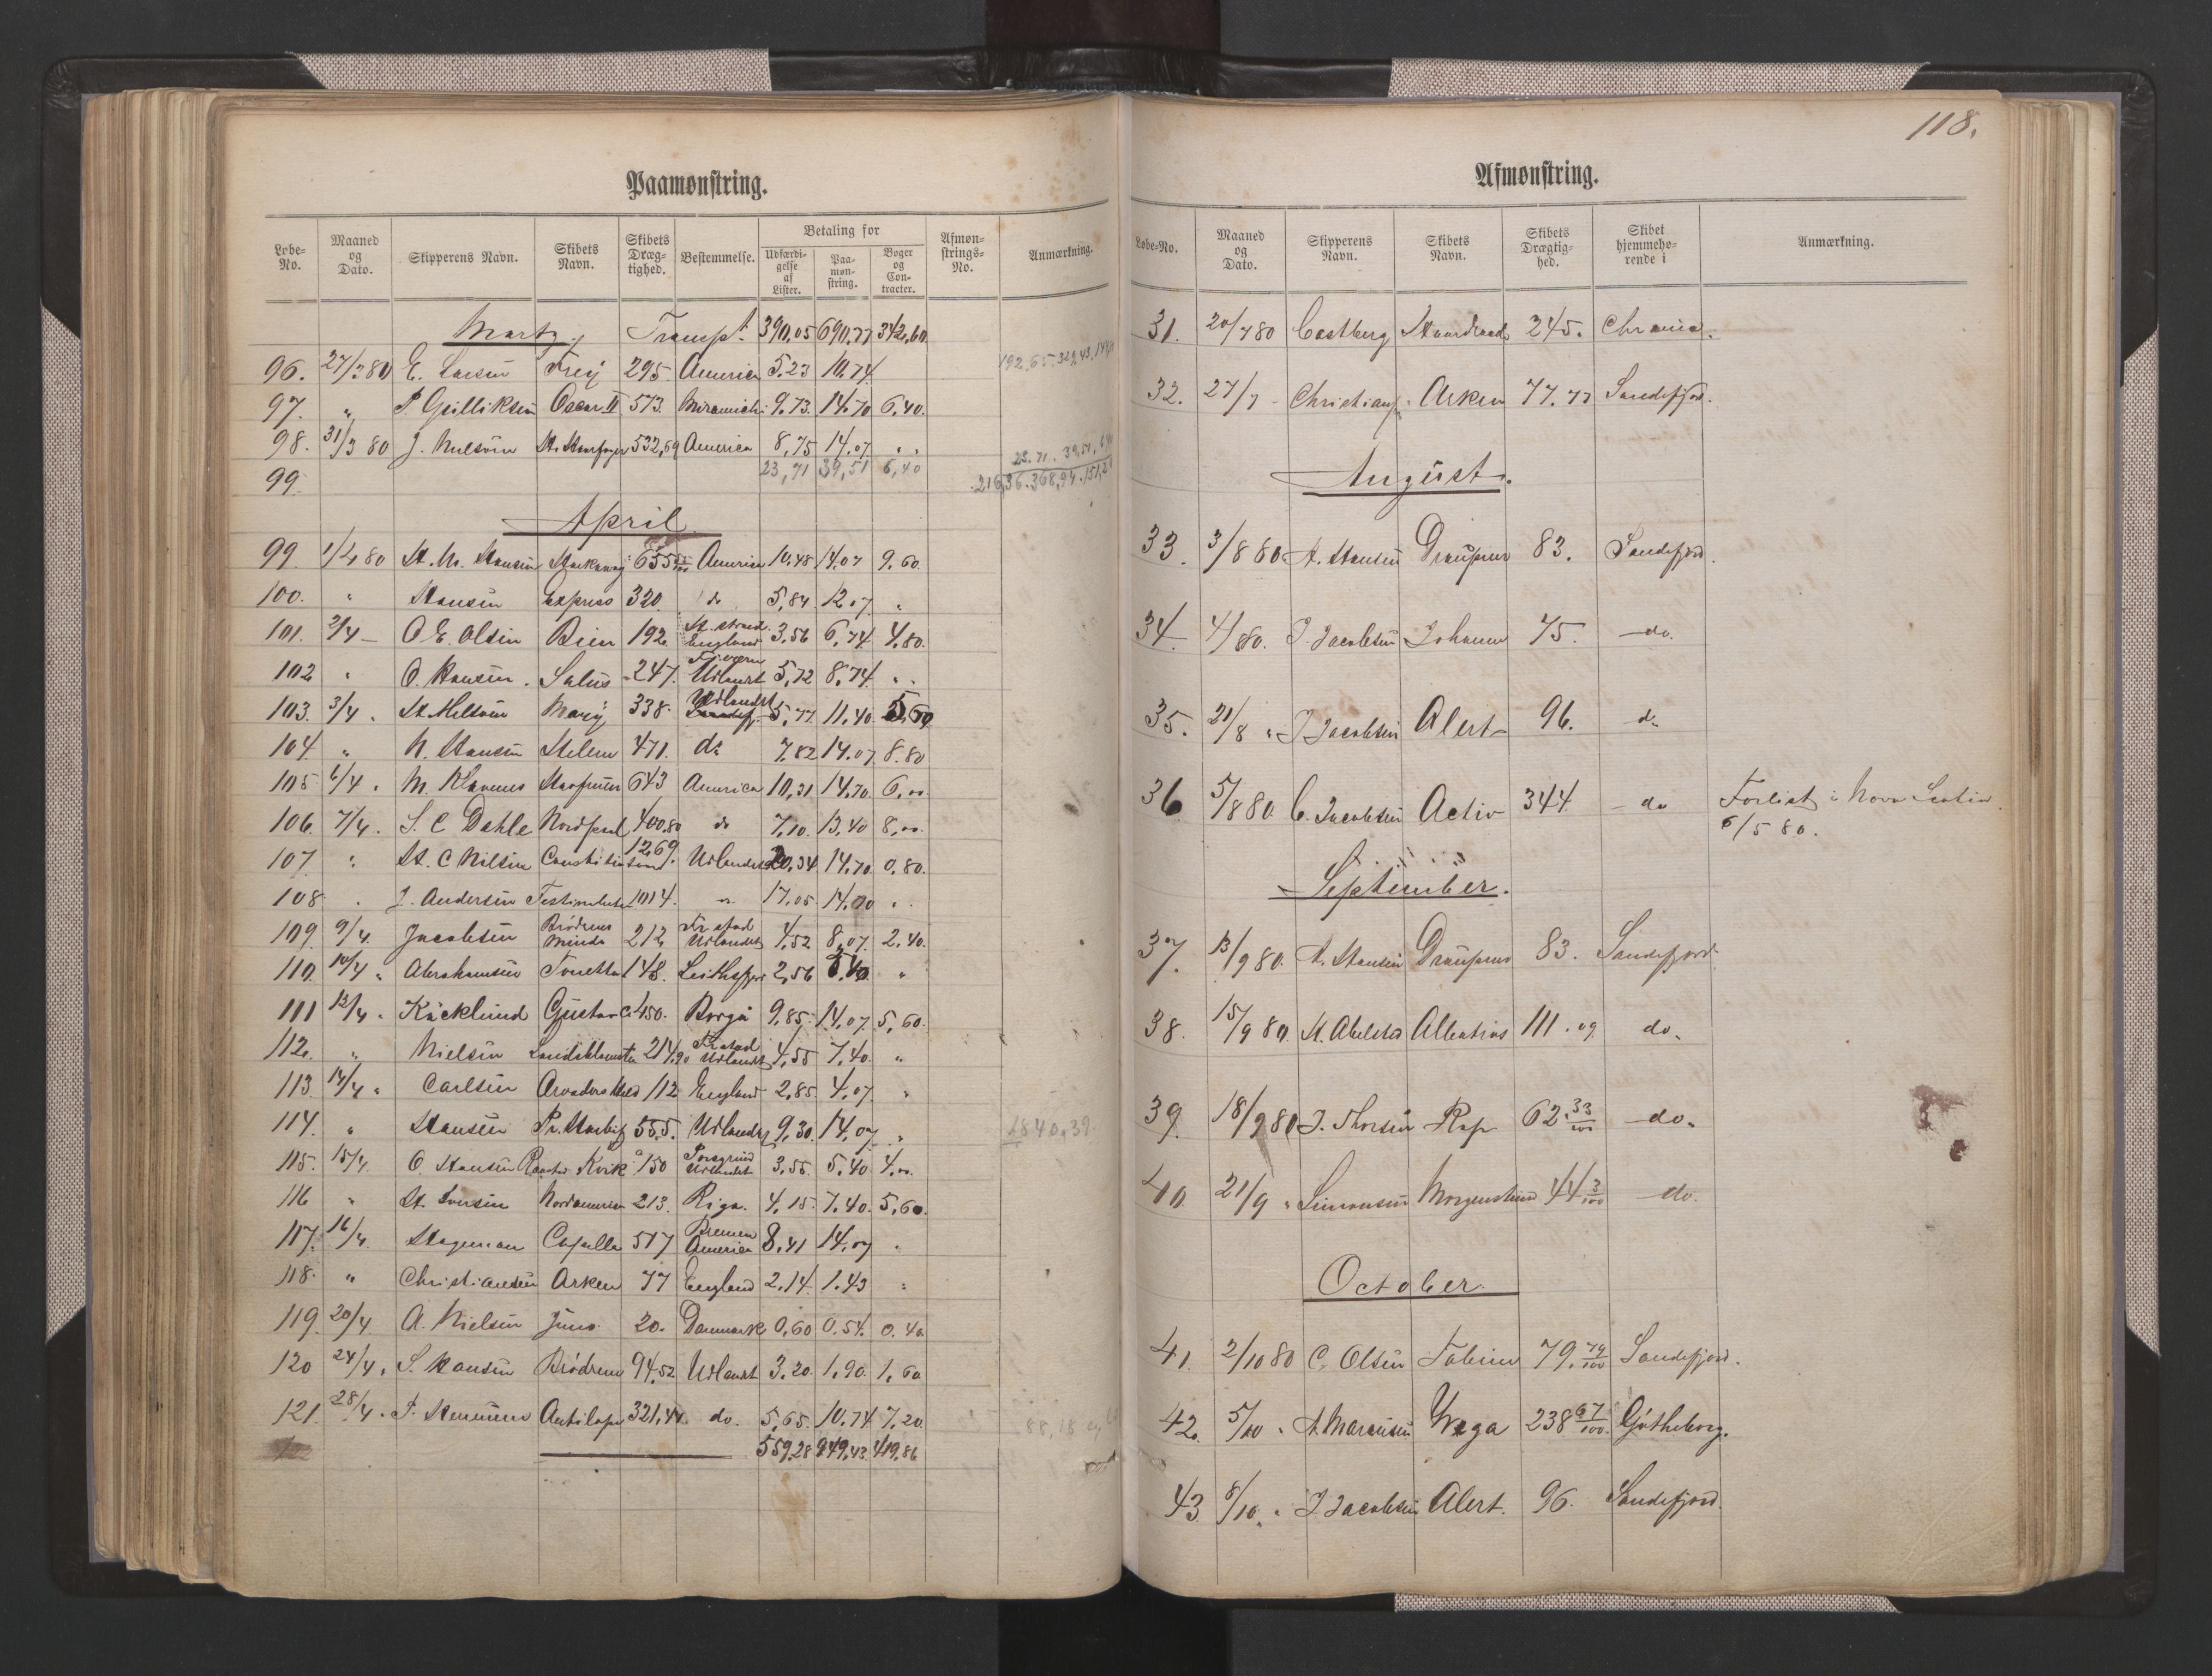 118.
Paamønstring.
Løbe-No. Maaned og Dato. Skipperens Navn. Skibets Navn. Skibets Dræg-tighed. Bestemmelse. Betaling for Udfærdi-gelse af Lister. Paa-møn-string. Bøger og Con-tracter. Afmøn-strings-No. Anmærkning.
Martz Transpt 390,05 690,77 342,60
96. 27/3 80 E. Larsen Frey 295. America 5,23 10,74
97. " P Gulliksen Oscar II 573. Miramichi 9,73. 14,70 6,40.
98. 31/3 80 J. Nielsen 532,69 America 8,75 14,07 " "
23,71 39,51 6,40
99
April
99 1/4 80 H. M. Hansen 655 America 10,48 14,07 9,60.
100. " Hansen Express 320. do 5,84 12,07 "
101. 2/4 – O E. Olsen Bien 192. England 3,56 6,74. 4,80.
102 " O. Hansen. Salus 247. Udlandet 5,72 8,74 " "
103. 3/4 " H. Nielsen Mary 338. Udlandet 5,77 11,40.
104. " N. Hansen Helene 471. do 7,82 14,07 8.80
105 6/4 " M. Klavenes 643 America 10,31 14,70. 6,00.
106. 7/4. S. C Dahle Nordpol 400,80 do 7,10. 13,40 8,00.
107. " H. C Nielsen Constitution 1269. Udlandet 20,34 14,70. 0,80.
108 " J. Andersen 1014. " 17,05 14,70 "
109. 9/4. Jacobsen Brødrenes Minde 212 Fr.stad Udlandet 4,52 8,07. 2,40.
110. 10/4 " Abrahamsen 148. 2,56 "
111 12/4 " Käcklund Gustav C. 450. Borgå 9,85. 14,07. 5,60.
112. " Nielsen 214,90 Fr.stad Udlandet 4,55 7,40. "
113. 14/4 " Carlsen 112 England 2,85. 4,07. "
114. " Hansen 555. Udlandet 9,30. 14,07. "
115. 15/4. O. Hansen Kvik 150 Porsgrund Udlandet 3,55. 5,40 4,00.
116 " H. Iversen Nordamerica 213. Riga. 4,15. 7,40. 5,60.
117. 16/4. Hageman Capella 517 Bremen America 8,41 14,07 "
118. " Christiansen Arken 77 England 2,14. 1.43 "
119. 20/4. A. Nielsen Juno. 20. Danmark 0,60 0,54. 0.40.
120 24/4 " S. Hansen Brødrene 94,52 Udlandet 3,20. 1,90. 1,60
121. 28/4. Antilope 321,44. do. 5,65. 10,74 7,20.
559,28 949,43. 419,86
Afmønstring.
Løbe-No. Maaned og Dato. Skipperens Navn. Skibets Navn. Skibets Drægtig-hed. Skibet hjemmehø-rende i Anmærkning.
31. 20/7 80 Castberg 245. Chrania.
32. 27/7 – Christians. Arken 77.77 Sandefjord.
August.
33. 3/8 80. A. Hansen Draupner 83. Sandefjord.
34. 4/80. J. Jacobsen Johanne 75. – do.
35. 21/8 " J Jacobsen Alert 96. do
36 5/8 80. C. Jacobsen Activ 344 – do Forlist i Nova Scotia
6/5 80.
September.
37. 13/9 80. A. Hansen Draupner 83. Sandefjord.
38. 15/9 80. H. Abelsted Albatros 111.09. do.
39. 18/9 80 J. Thorsen Rap 62.33/100 – do.
40. 21/9 " Simonsen Morgenstund 44 3/100 – do.
October.
41. 2/10 80 C. Olsen Fabian 79.79/100 Sandefjord.
42. 5/10 " A. Marcusen Wega 238 67/100. Götheborg.
43. 8/10. " J. Jacobsen Alert. 96. Sandefjord.